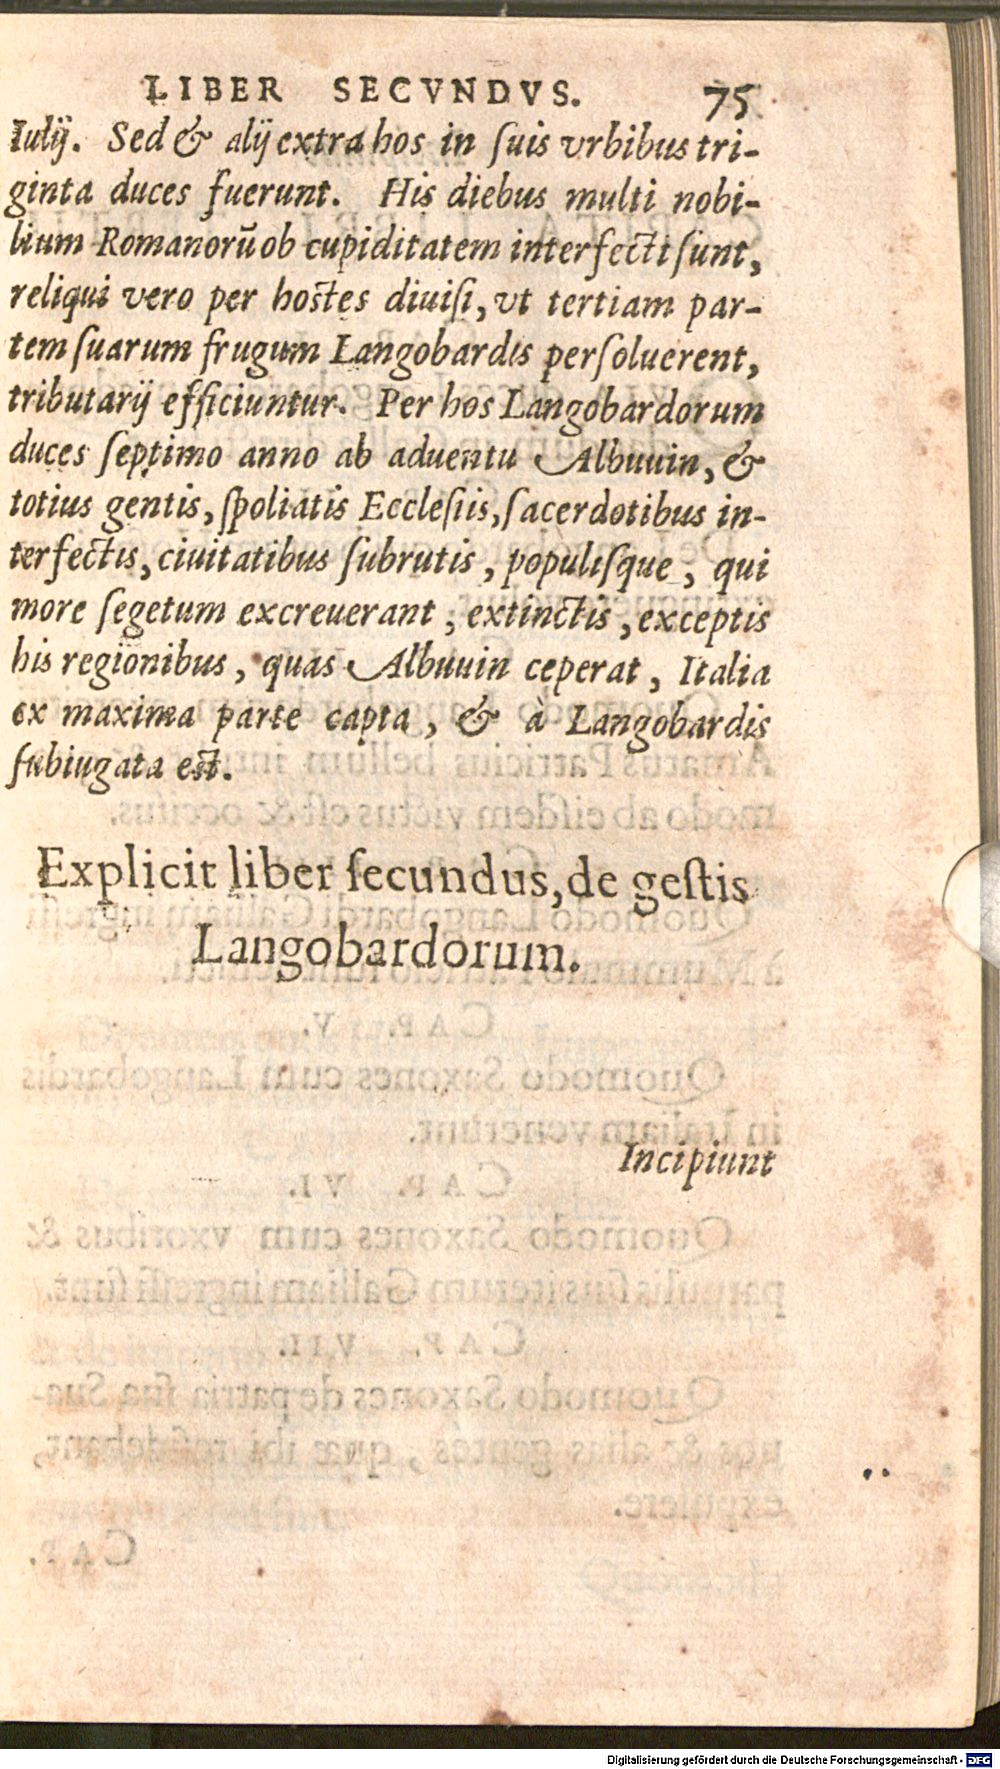 LIBER SECVNDVS. 75
Iulij. Sed & alij extra hos in ſuis vrbibus tri-
ginta duces fuerunt. His diebus multi nobi-
lium Romanorũ ob cupiditatem interfecti ſunt,
reliqui vero per hostes diuiſi, vt tertiam par-
tem ſuarum frugum Langobardis perſoluerent,
tributarij efficiuntur. Per hos Langobardorum
duces ſeptimo anno ab aduentu Albuuin, &
totius gentis, ſpoliatis Eccleſiis, ſacerdotibus in-
terfectis, ciuitatibus ſubrutis, populiſque, qui
more ſegetum excreuerant, extinctis, exceptis
his regionibus, quas Albuuin ceperat, Italia
ex maxima parte capta, & à Langobardis
ſubiugata est.
Explicit liber ſecundus, de geſtis
Langobardorum.
Incipiunt
Digitalisierung gefördert durch die Deutsche Forschungsgemeinschaft - DFG